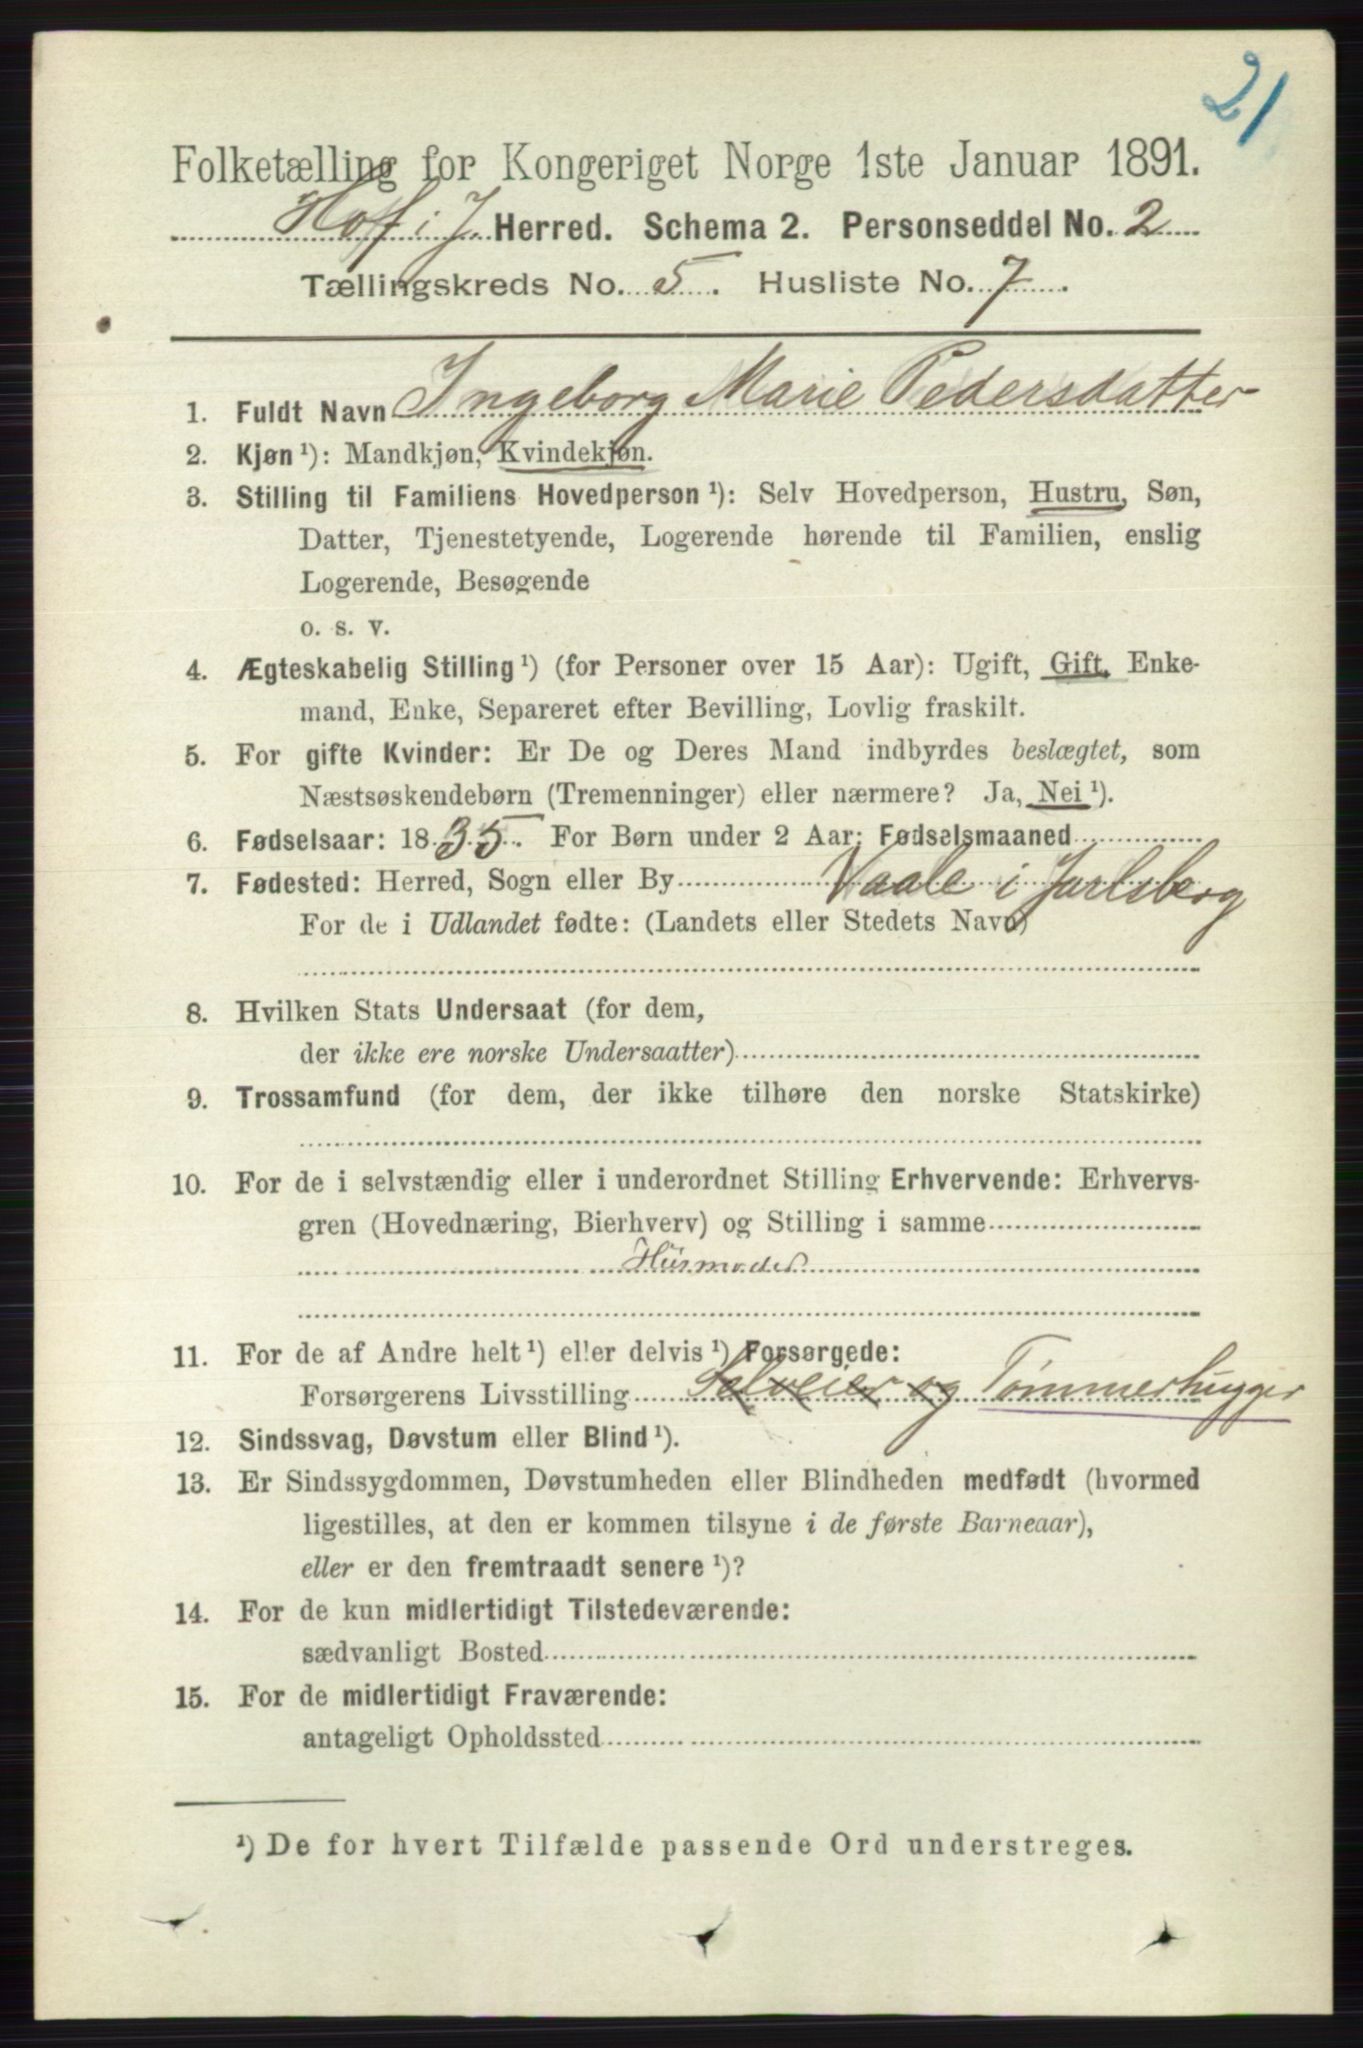 21
Folketælling for Kongeriget Norge 1ste Januar 1891.
Hoff i J. Herred. Schema 2. Personseddel No. 2
Tællingskreds No. 5. Husliste No. 7.
1. Fuldt Navn Ingeborg Marie Pedersdatter
2. Kjøn ¹): Mandkjøn, Kvindekjøn.
3. Stilling til Familiens Hovedperson ¹): Selv Hovedperson, Hustru, Søn,
Datter, Tjenestetyende, Logerende hørende til Familien, enslig
Logerende, Besøgende
o. s. v.
4. Ægteskabelig Stilling ¹) (for Personer over 15 Aar): Ugift, Gift, Enke-
mand, Enke, Separeret efter Bevilling, Lovlig fraskilt.
5. For gifte Kvinder: Er De og Deres Mand indbyrdes beslægtet, som
Næstsøskendebørn (Tremenninger) eller nærmere? Ja, Nei ¹).
6. Fødselsaar: 1835. For Børn under 2 Aar: Fødselsmaaned
7. Fødested: Herred, Sogn eller By Vaale i Jarlsberg
For de i Udlandet fødte: (Landets eller Stedets Navn)
8. Hvilken Stats Undersaat (for dem,
der ikke ere norske Undersaatter)
9. Trossamfund (for dem, der ikke tilhøre den norske Statskirke)
10. For de i selvstændig eller i underordnet Stilling Erhvervende: Erhvervs-
gren (Hovednæring, Bierhverv) og Stilling i samme
Husmoder
11. For de af Andre helt ¹) eller delvis ¹) Forsørgede:
Forsørgerens Livsstilling Selveier og Tømmerhugger
12. Sindssvag, Døvstum eller Blind ¹).
13. Er Sindssygdommen, Døvstumheden eller Blindheden medfødt (hvormed
ligestilles, at den er kommen tilsyne i de første Barneaar),
eller er den fremtraadt senere ¹)?
14. For de kun midlertidigt Tilstedeværende:
sædvanligt Bosted
15. For de midlertidigt Fraværende:
antageligt Opholdssted
¹) De for hvert Tilfælde passende Ord understreges.